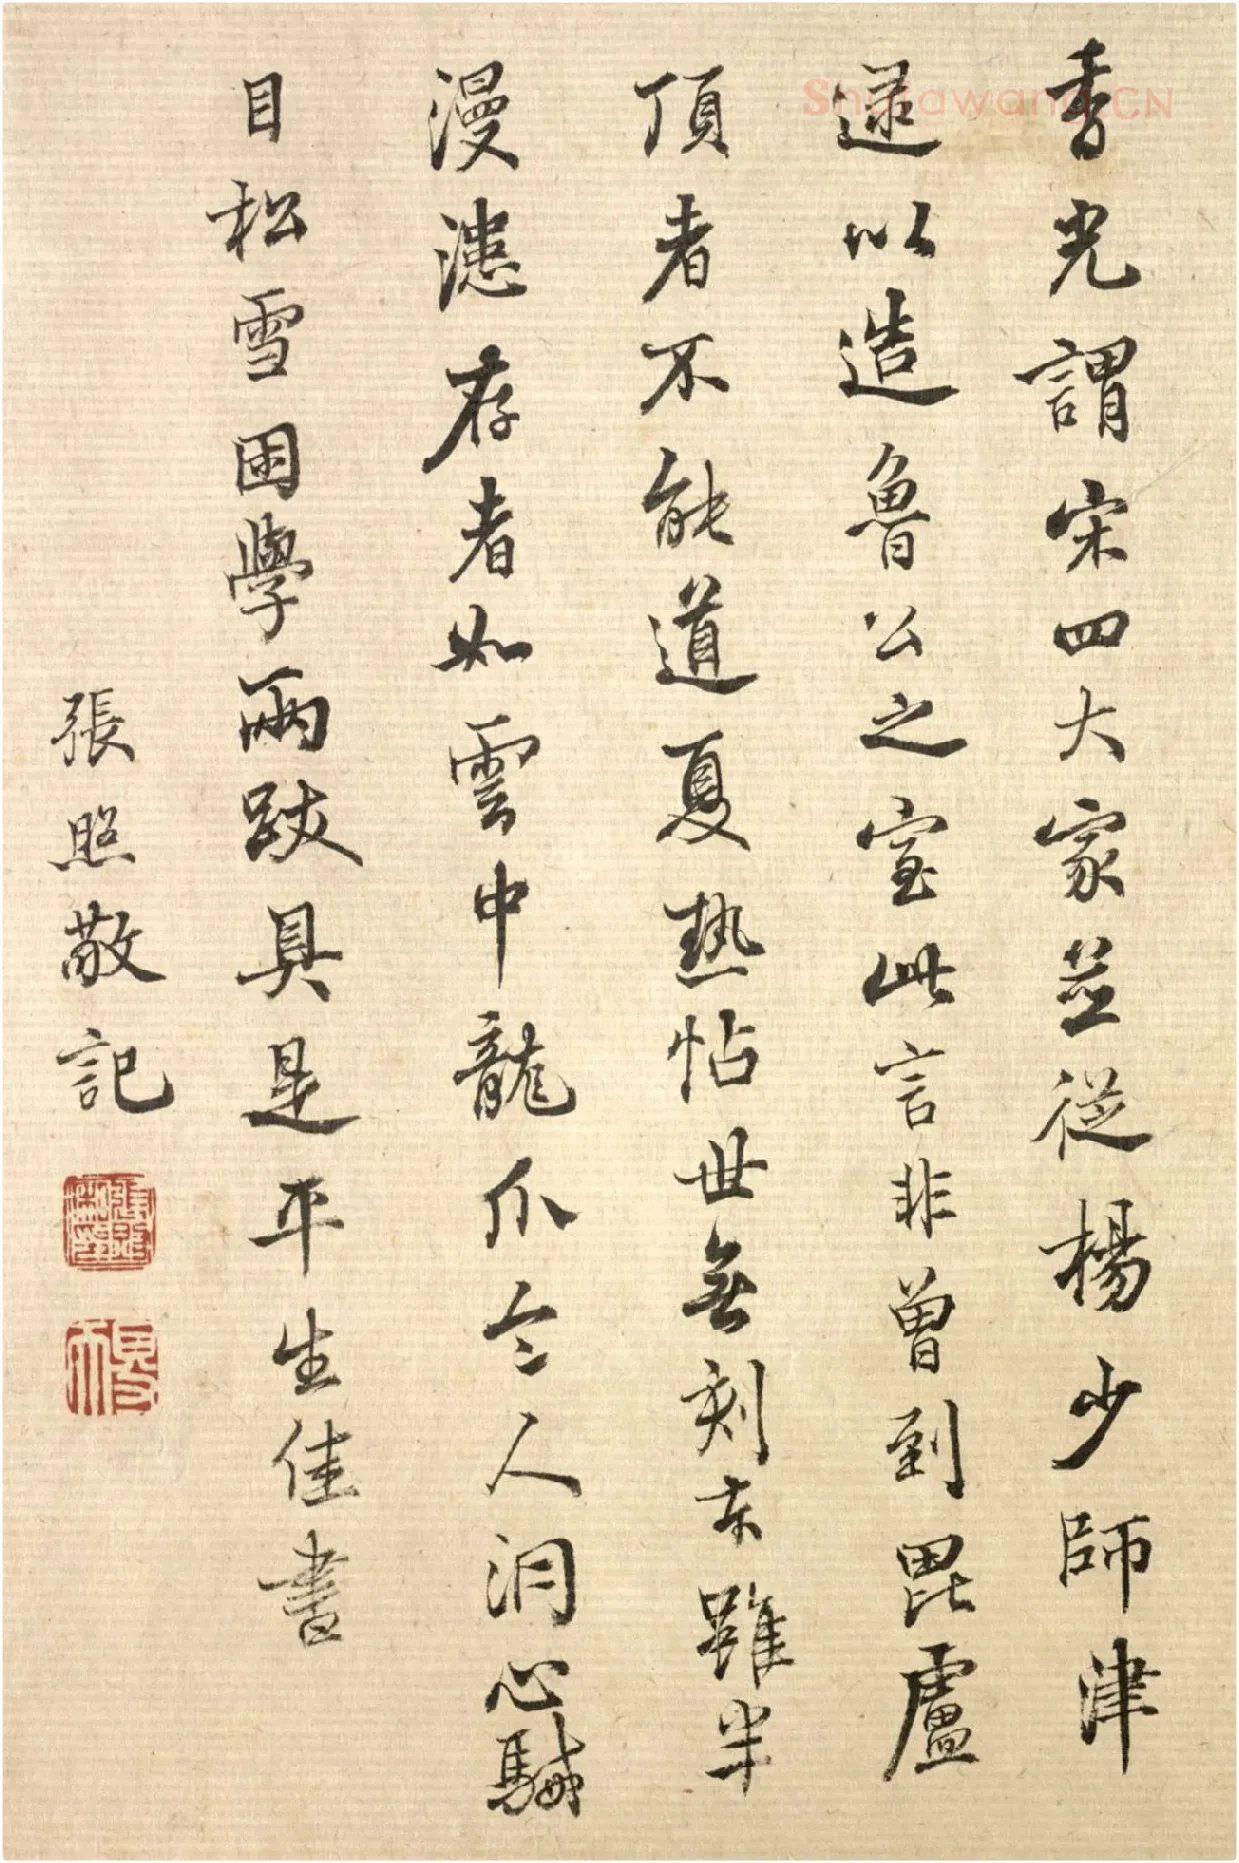 香光謂宋四大家並從楊少師津
逮以造魯公之室此言非曾到毘盧
頂者不能道夏熱帖世無刻本雖半
漫漶存者如雲中龍爪令人洞心駴
目松雪困學兩跋具是平生佳書
張照敬記